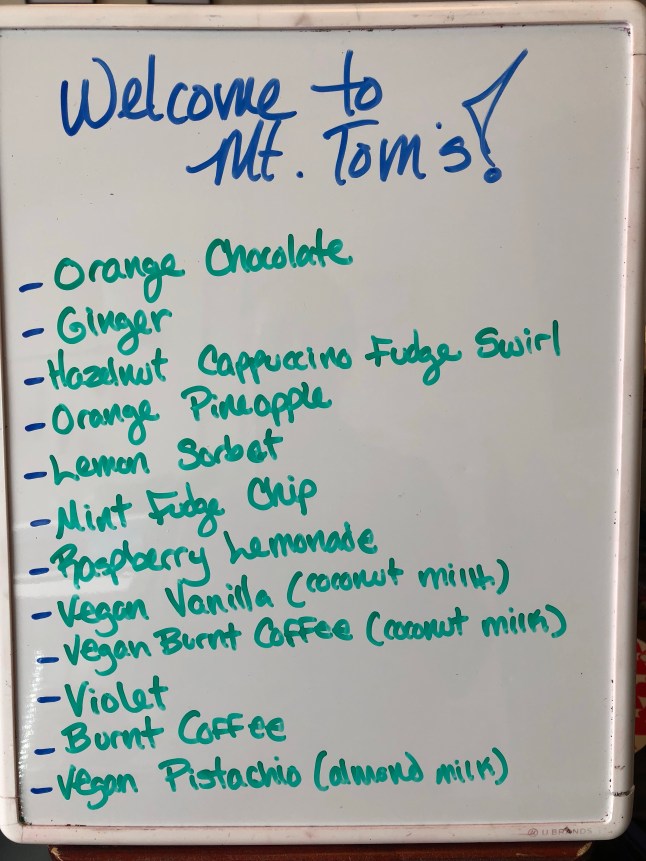 Welcome to
Mt. Tom's!
- Orange Chocolate
- Ginger
- Hazelnut Cappuccino Fudge Swirl
- Orange Pineapple
- Lemon Sorbet
- Mint Fudge Chip
- Raspberry Lemonade
- Vegan Vanilla (coconut milk)
- Vegan Burnt Coffee (coconut milk)
- Violet
- Burnt Coffee
- Vegan Pistachio (almond milk)
U BRANDS